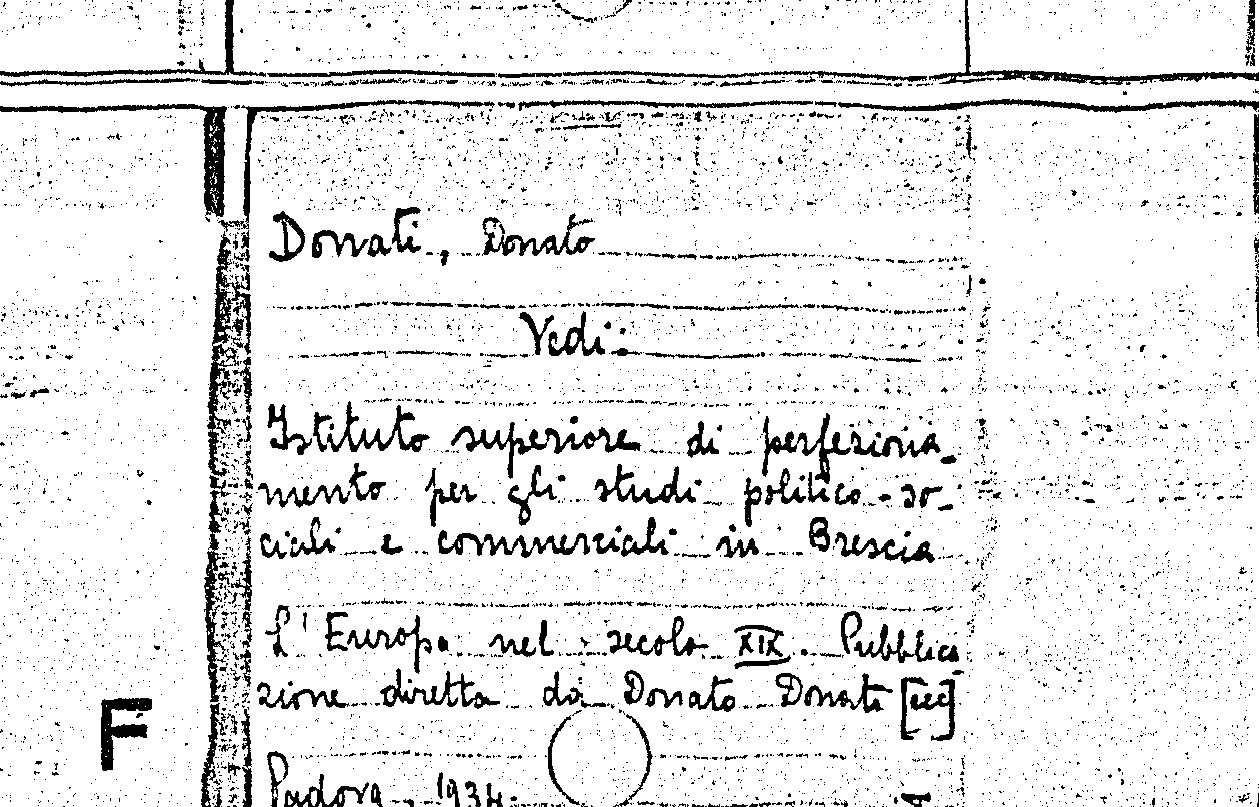 Donati, Donato
Vedi:
Istituto superiore di perfeziona-
mento per gli studi politico-so-
ciali e commerciali in Brescia
L'Europa nel secolo XIX. Pubblica
zione diretta da Donato Donati [ecc]
F
Padova, 1934.